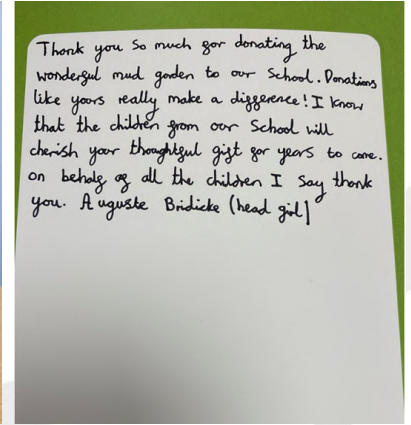 Thank you So much for donating the
wonderful mud garden to our School. Donations
like yours really make a difference! I know
that the children from our School will
cherish your thoughtful gift for years to come.
on behalf of all the children I Say thank
you. Auguste Bridicke (head girl)